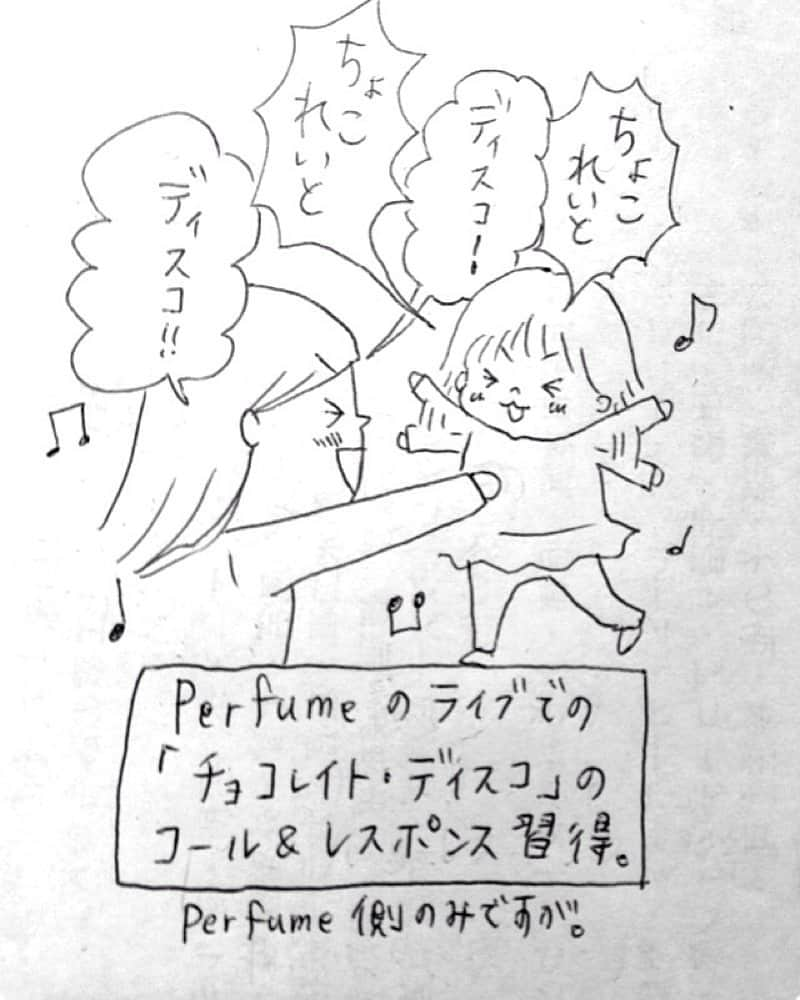 ちょこ
れいと
ディスコ!
ちょこ
れいと
ディスコ!!
Perfumeのライブでの
「チョコレイト・ディスコ」の
コール&レスポンス習得。
Perfume側のみですが。